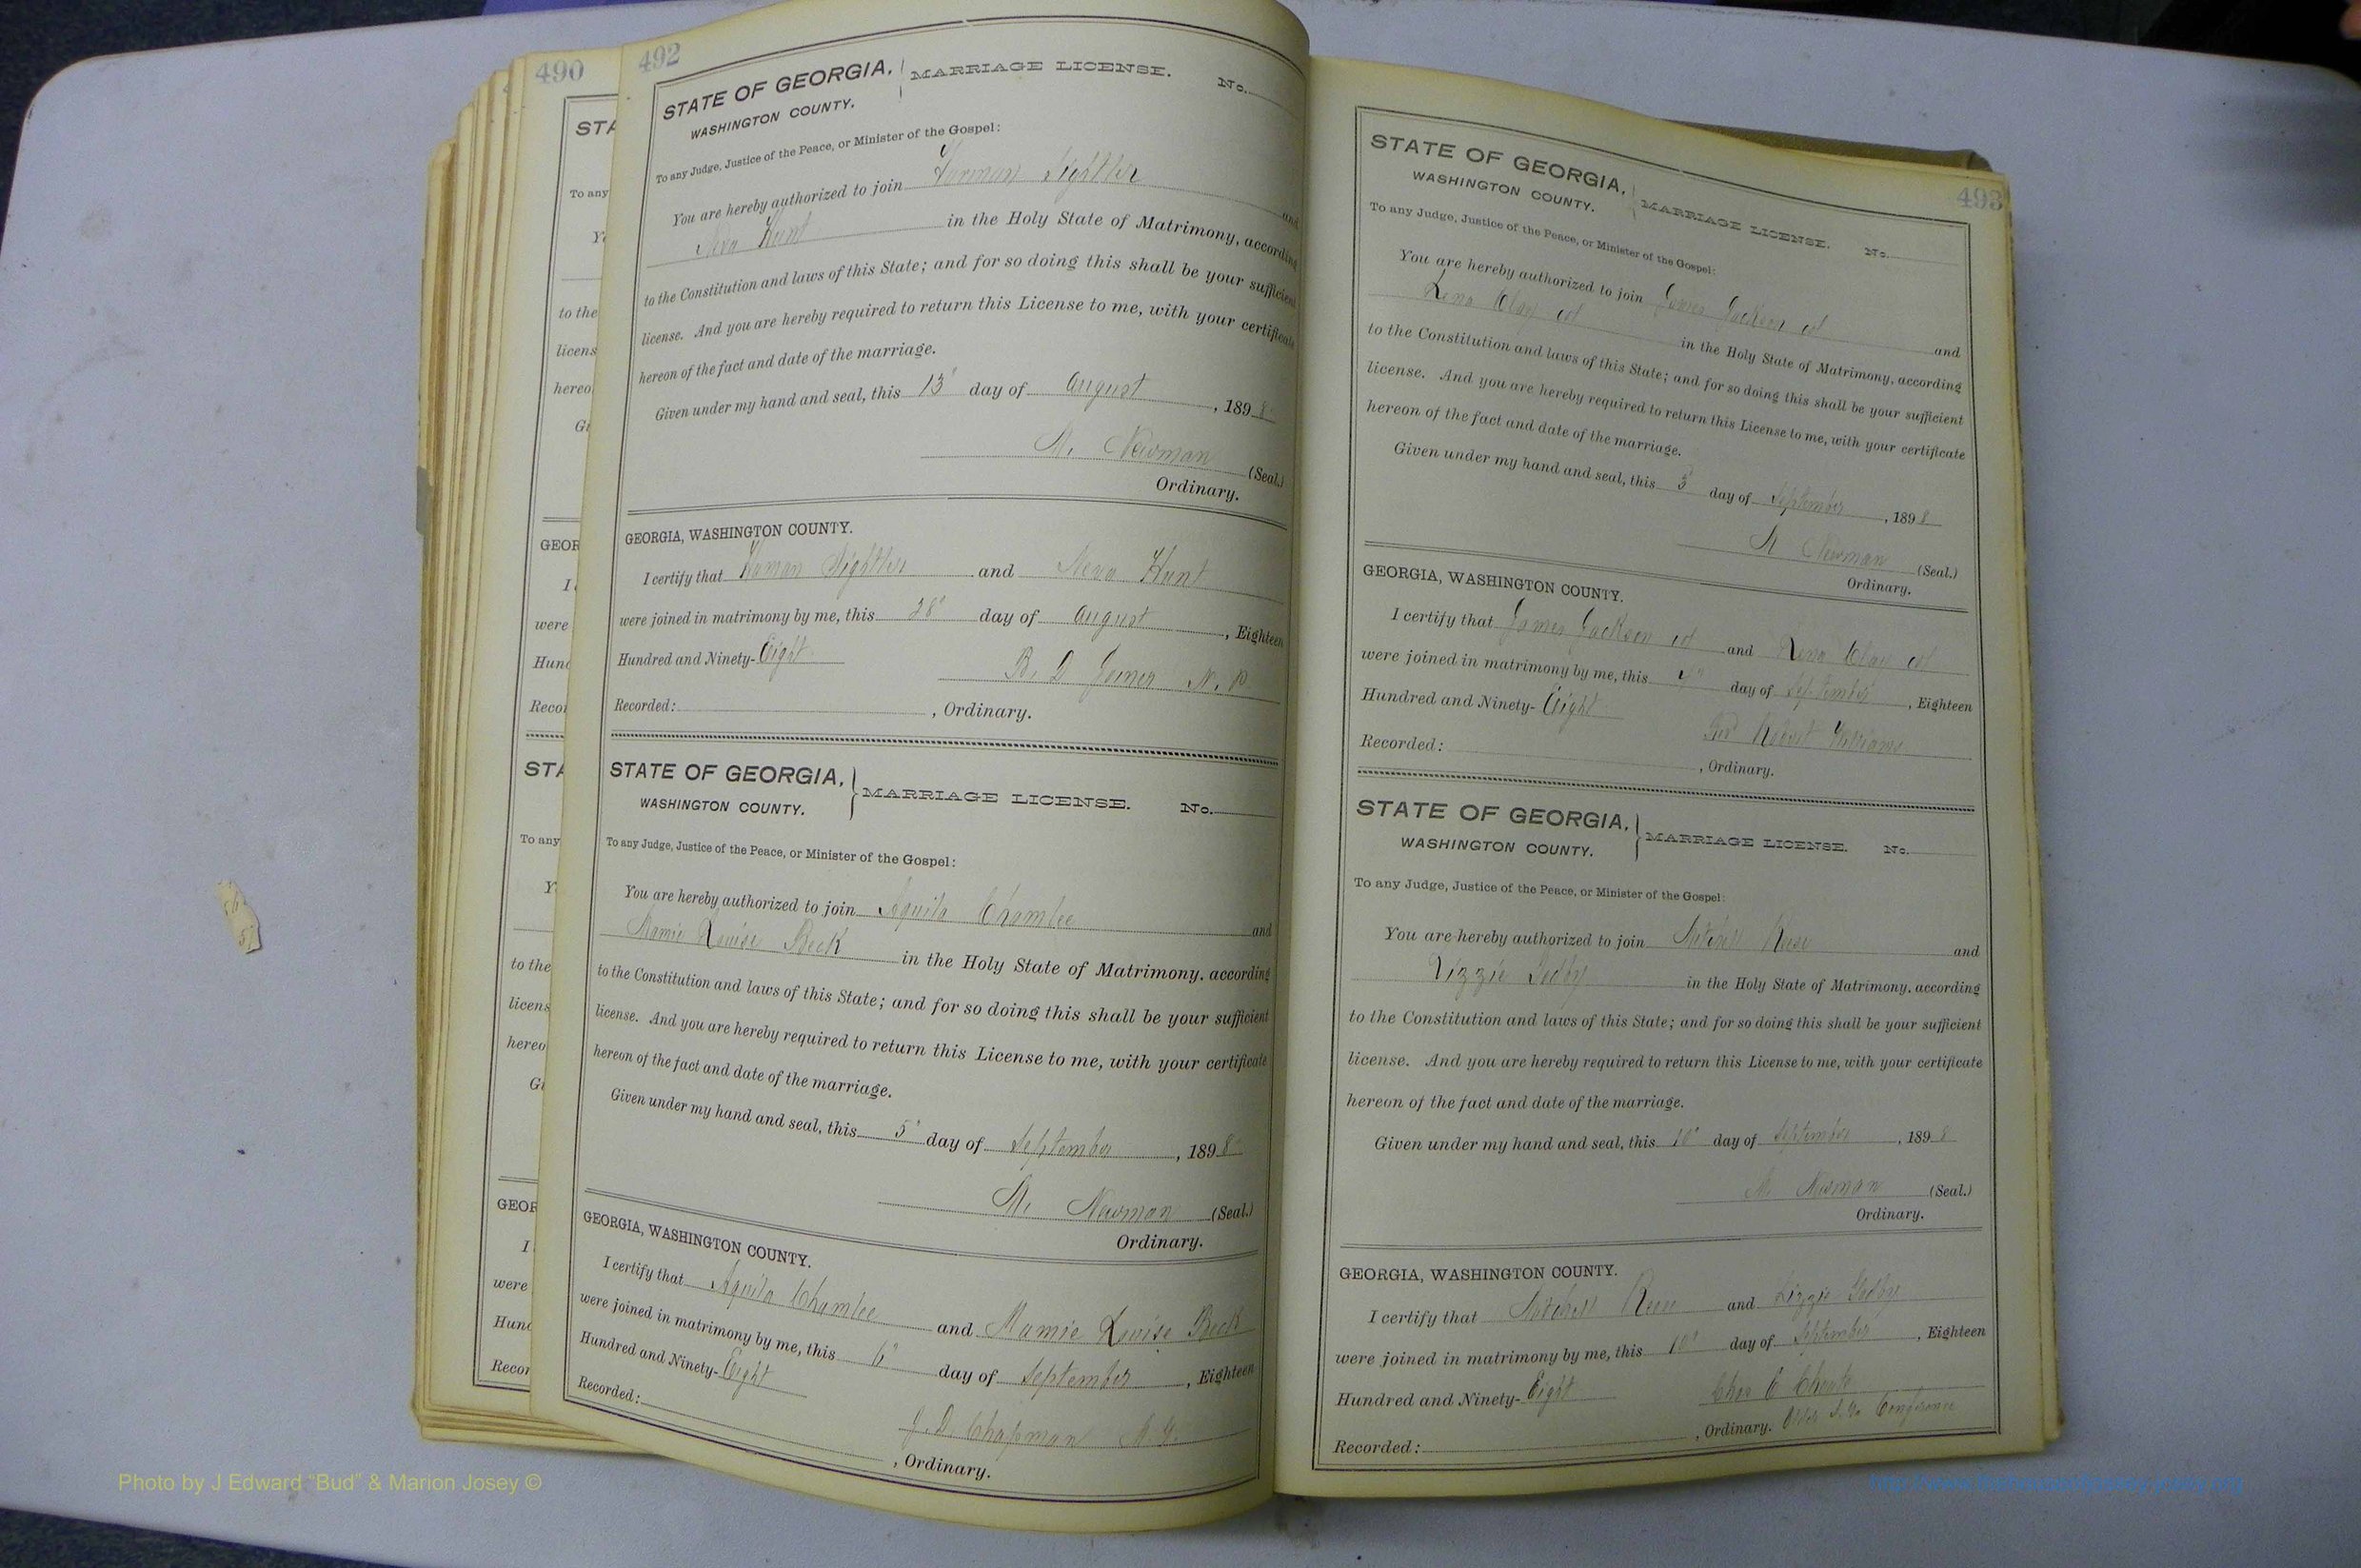 490
STA
To any
Yo
to the
licens
hereo
Gi
GEOR
I
were
Hund
Recor
STA
To any
Y
to the
licens
hereo
Gi
GEOR
I
were
Hund
Recor
492
STATE OF GEORGIA, MARRIAGE LICENSE. No.
WASHINGTON COUNTY.
To any Judge, Justice of the Peace, or Minister of the Gospel:
You are hereby authorized to join Furman Lightler and
Neva Hunt in the Holy State of Matrimony, according
to the Constitution and laws of this State; and for so doing this shall be your sufficient
license. And you are hereby required to return this License to me, with your certificate
hereon of the fact and date of the marriage.
Given under my hand and seal, this 13" day of August, 1898
M. Newman (Seal.)
Ordinary.
GEORGIA, WASHINGTON COUNTY.
I certify that and Neva Hunt
were joined in matrimony by me, this 28" day of August, Eighteen
Hundred and Ninety-Eight
B. D. Joiner N. P.
Recorded: , Ordinary.
STATE OF GEORGIA, MARRIAGE LICENSE. No.
WASHINGTON COUNTY.
To any Judge, Justice of the Peace, or Minister of the Gospel:
You are hereby authorized to join Aquila Chamlee and
Mamie Louise Beck in the Holy State of Matrimony, according
to the Constitution and laws of this State; and for so doing this shall be your sufficient
license. And you are hereby required to return this License to me, with your certificate
hereon of the fact and date of the marriage.
Given under my hand and seal, this 5" day of September, 1898
M. Newman (Seal.)
Ordinary.
GEORGIA, WASHINGTON COUNTY.
I certify that Aquila Chamlee and Mamie Louise Beck
were joined in matrimony by me, this 6" day of September, Eighteen
Hundred and Ninety-Eight
J. D. Chapman M. G.
Recorded: , Ordinary.
493
STATE OF GEORGIA, MARRIAGE LICENSE. No.
WASHINGTON COUNTY.
To any Judge, Justice of the Peace, or Minister of the Gospel:
You are hereby authorized to join James Jackson col and
Lena Clay col in the Holy State of Matrimony, according
to the Constitution and laws of this State; and for so doing this shall be your sufficient
license. And you are hereby required to return this License to me, with your certificate
hereon of the fact and date of the marriage.
Given under my hand and seal, this 3" day of September, 1898
M Newman (Seal.)
Ordinary.
GEORGIA, WASHINGTON COUNTY.
I certify that James Jackson col and Lena Clay col
were joined in matrimony by me, this 4" day of September, Eighteen
Hundred and Ninety-Eight
Robert Williams
Recorded: , Ordinary.
STATE OF GEORGIA, MARRIAGE LICENSE. No.
WASHINGTON COUNTY.
To any Judge, Justice of the Peace, or Minister of the Gospel:
You are hereby authorized to join and
Lizzie in the Holy State of Matrimony, according
to the Constitution and laws of this State; and for so doing this shall be your sufficient
license. And you are hereby required to return this License to me, with your certificate
hereon of the fact and date of the marriage.
Given under my hand and seal, this 10" day of September, 1898
M. Newman (Seal.)
Ordinary.
GEORGIA, WASHINGTON COUNTY.
I certify that and Lizzie
were joined in matrimony by me, this 10" day of September, Eighteen
Hundred and Ninety-Eight
Chas C
Recorded: , Ordinary. Conference
Photo by J Edward "Bud" & Marion Josey ©